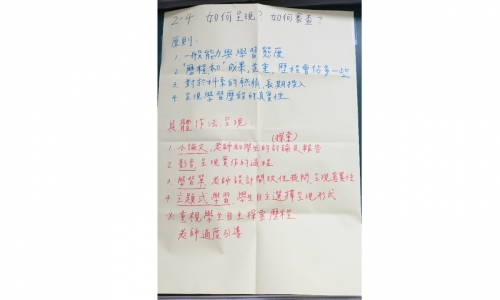 2-4 如何呈現? 如何審查?
原則:
1. 一般能力與學習態度
2. "歷程和"成果, 並重, 歷程會佔多一些
3. 對於科系的熱情, 長期投入
4. 呈現學習歷程的真實性
具體作法, 呈現
(探索)
1. 小論文, 老師和學生的討論及報告
2. 影音呈現實作的過程
3. 學習單 老師設計開放性提問 呈現差異性
4. 主題式學習, 學生自主選擇呈現形式
重視學生自主探索歷程
老師適度引導